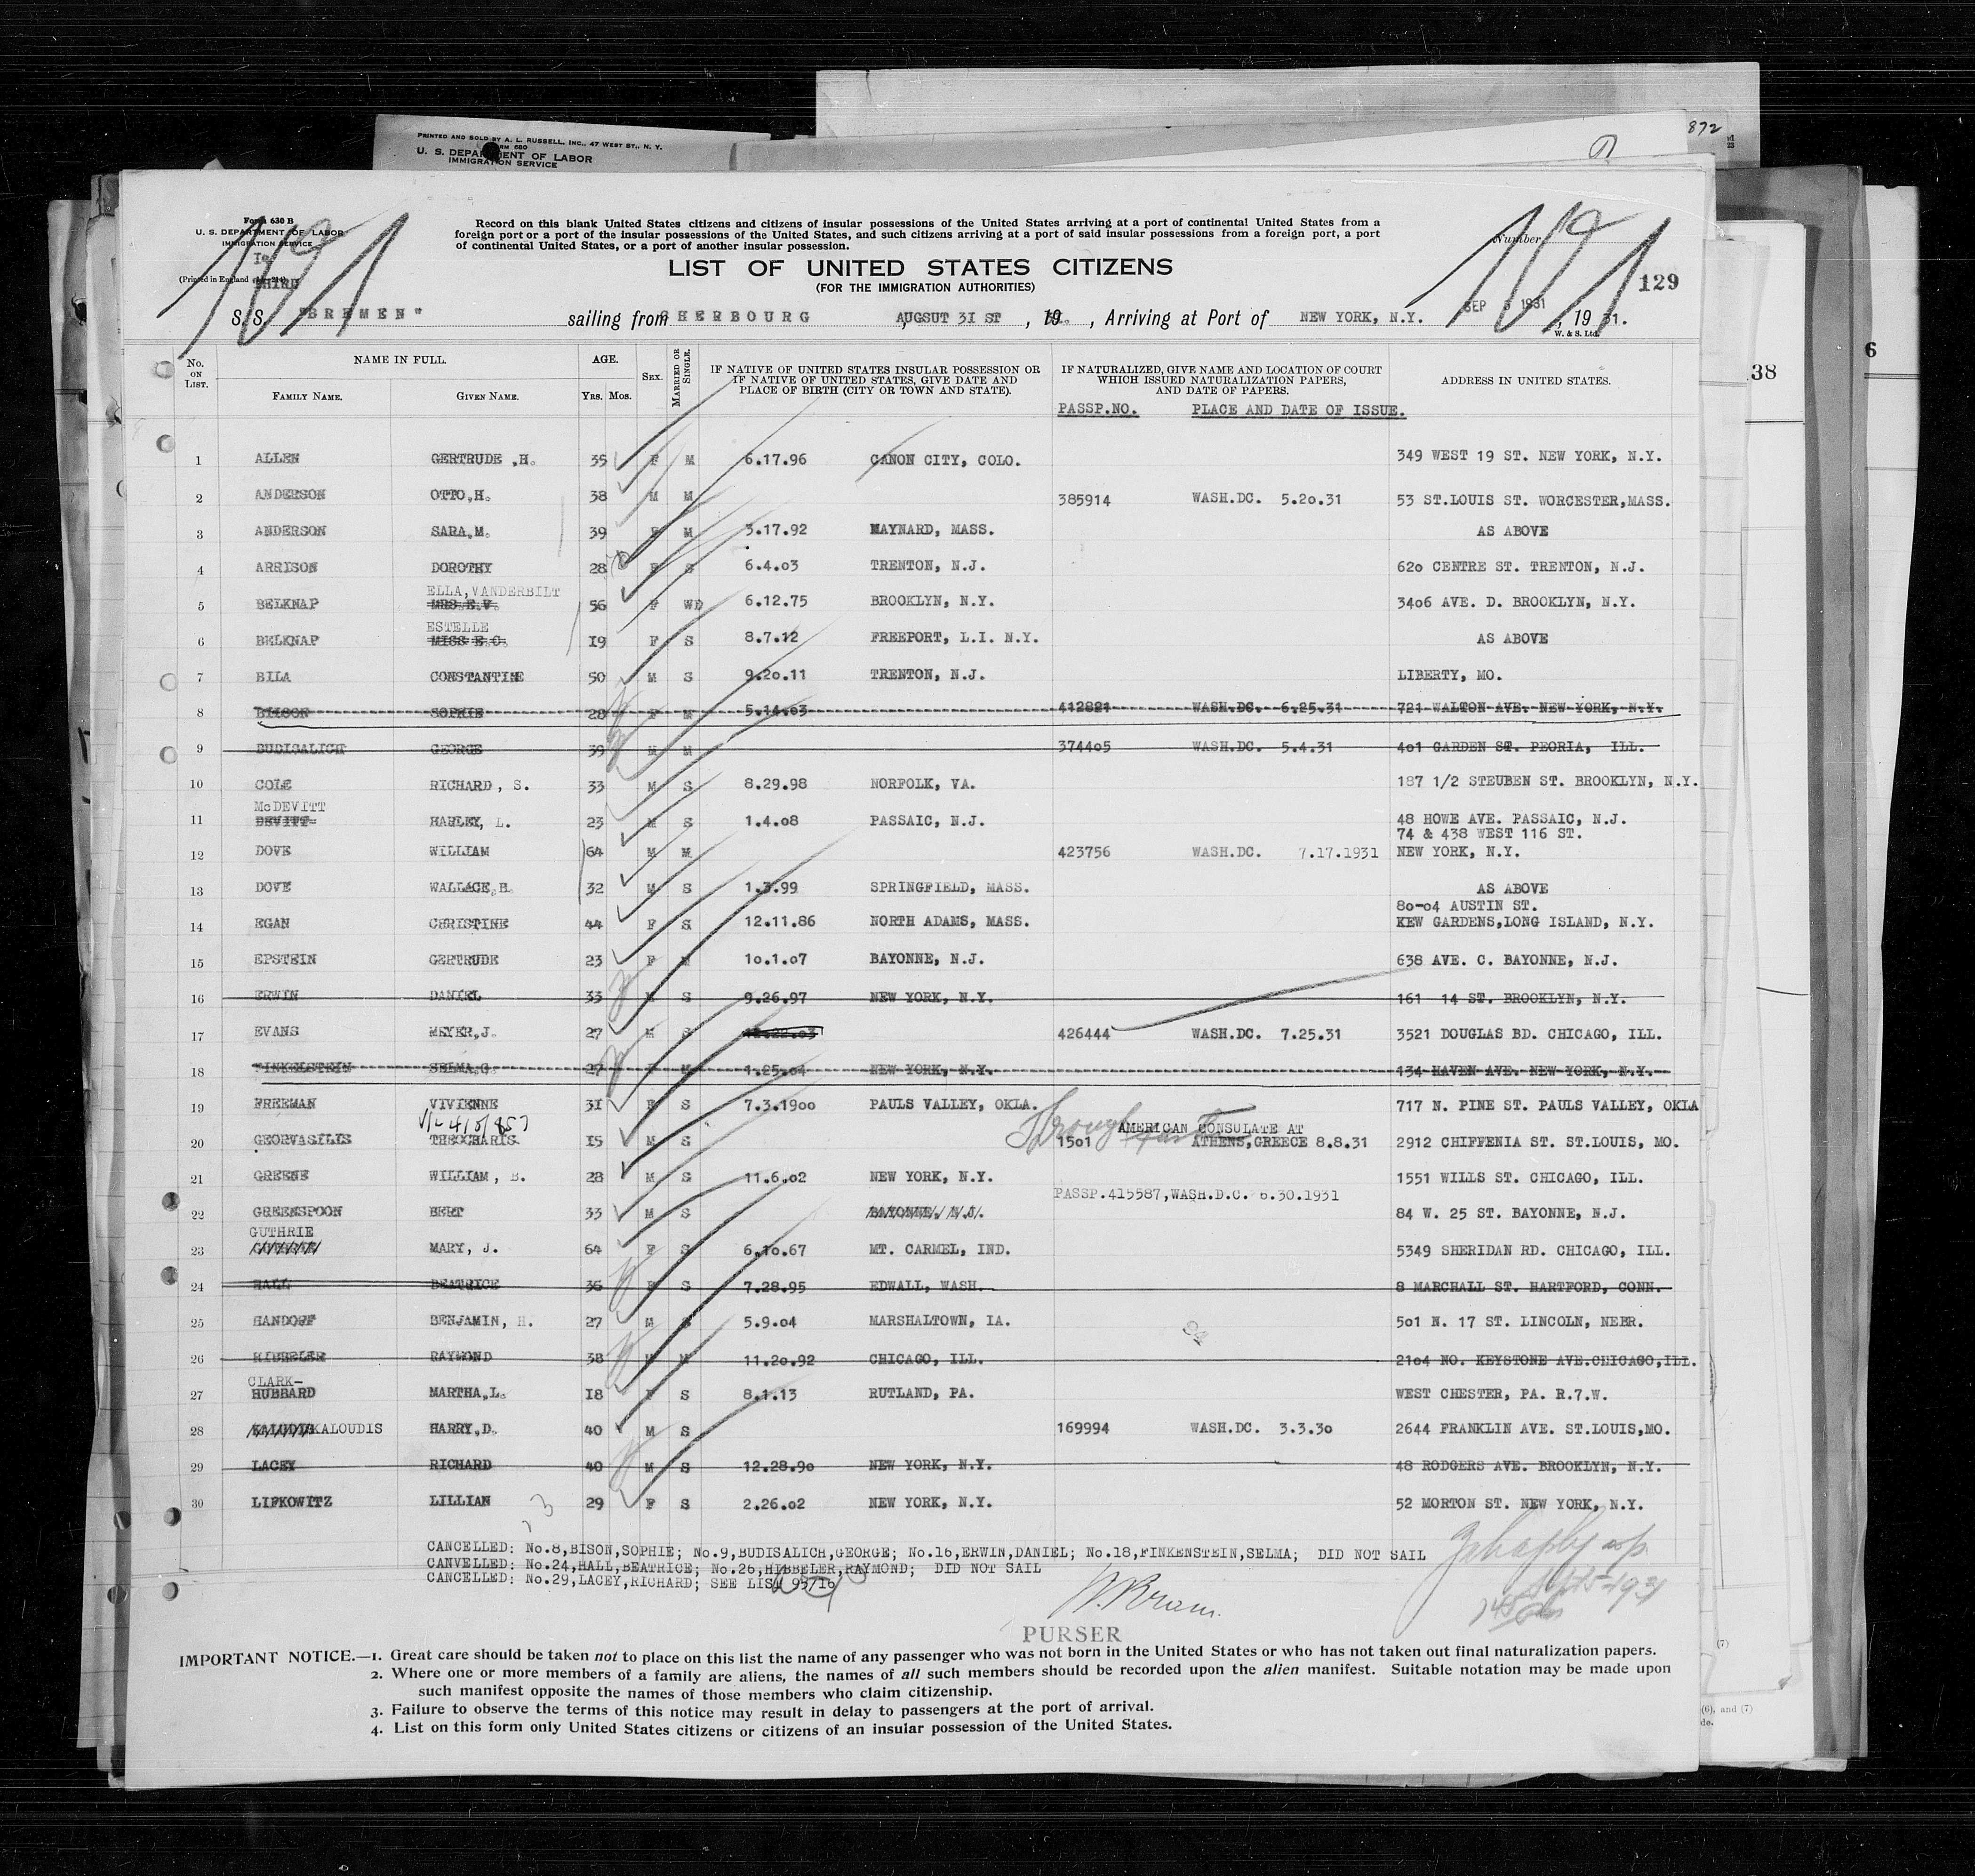 PRINTED AND SOLD BY A. L. RUSSELL, INC., 47 WEST ST., N. Y.
U. S. DEPARTMENT OF LABOR
IMMIGRATION SERVICE
872
38
6
Form 630 B
U. S. DEPARTMENT OF LABOR
IMMIGRATION SERVICE
(Printed in England
THIRD
Record on this blank United States citizens and citizens of insular possessions of the United States arriving at a port of continental United States from a
foreign port or a port of the insular possessions of the United States, and such citizens arriving at a port of said insular possessions from a foreign port, a port
of continental United States, or a port of another insular possession.
Number
LIST OF UNITED STATES CITIZENS
(FOR THE IMMIGRATION AUTHORITIES)
191
191
129
S. S. "BREMEN" sailing from CHERBOURG , AUGSUT 31 ST , 19 , Arriving at Port of NEW YORK, N.Y. SEP 5 1931 , 1931.
W. & S. Ltd.
No. ON LIST. NAME IN FULL. AGE. SEX. MARRIED OR SINGLE. IF NATIVE OF UNITED STATES INSULAR POSSESSION OR IF NATIVE OF UNITED STATES, GIVE DATE AND PLACE OF BIRTH (CITY OR TOWN AND STATE). IF NATURALIZED, GIVE NAME AND LOCATION OF COURT WHICH ISSUED NATURALIZATION PAPERS, AND DATE OF PAPERS. ADDRESS IN UNITED STATES.
FAMILY NAME. GIVEN NAME. Yrs. Mos. PASSP.NO. PLACE AND DATE OF ISSUE.
1 ALLEN GERTRUDE ,H. 35 F M 6.17.96 CANON CITY, COLO. 349 WEST 19 ST. NEW YORK, N.Y.
2 ANDERSON OTTO,H. 38 M M 385914 WASH.DC. 5.20.31 53 ST.LOUIS ST. WORCESTER,MASS.
3 ANDERSON SARA,M. 39 F M 3.17.92 MAYNARD, MASS. AS ABOVE
4 ARRISON DOROTHY 28 F S 6.4.03 TRENTON, N.J. 620 CENTRE ST. TRENTON, N.J.
ELLA,VANDERBILT
5 BELKNAP MRS.E.V. 56 F WD 6.12.75 BROOKLYN, N.Y. 3406 AVE. D. BROOKLYN, N.Y.
ESTELLE
6 BELKNAP MISS E.C. 19 F S 8.7.12 FREEPORT, L.I. N.Y. AS ABOVE
7 BILA CONSTANTINE 50 M S 9.20.11 TRENTON, N.J. LIBERTY, MO.
8 BIISON SOPHIE 28 F M 5.14.03 412821 WASH.DC. 6.25.31 721 WALTON AVE. NEW YORK, N.Y.
9 BUDISALICH GEORGE 39 M M 374405 WASH.DC. 5.4.31 401 GARDEN ST. PEORIA, ILL.
10 COLE RICHARD, S. 33 M S 8.29.98 NORFOLK, VA. 187 1/2 STEUBEN ST. BROOKLYN, N.Y.
McDEVITT
11 DEVITT HARLEY, L. 23 M S 1.4.08 PASSAIC, N.J. 48 HOWE AVE. PASSAIC, N.J.
74 & 438 WEST 116 ST.
12 DOVE WILLIAM 64 M M 423756 WASH.DC. 7.17.1931 NEW YORK, N.Y.
13 DOVE WALLACE,H. 32 M S 1.3.99 SPRINGFIELD, MASS. AS ABOVE
80-04 AUSTIN ST.
14 EGAN CHRISTINE 44 F S 12.11.86 NORTH ADAMS, MASS. KEW GARDENS,LONG ISLAND, N.Y.
15 EPSTEIN GERTRUDE 23 F M 10.1.07 BAYONNE, N.J. 638 AVE. C. BAYONNE, N.J.
16 ERWIN DANIEL 33 M S 9.26.97 NEW YORK, N.Y. 161 14 ST. BROOKLYN, N.Y.
17 EVANS MEYER,J. 27 M S 426444 WASH.DC. 7.25.31 3521 DOUGLAS BD. CHICAGO, ILL.
18 FINKELSTEIN SELMA,G. 27 F M 1.25.04 NEW YORK, N.Y. 134 HAVEN AVE. NEW YORK, N.Y.
19 FREEMAN VIVIENNE 31 F S 7.3.1900 PAULS VALLEY, OKLA. 717 N. PINE ST. PAULS VALLEY, OKLA
AMERICAN CONSULATE AT
20 GEORVASILIS THEOCHARIS 15 M S 1501 ATHENS,GREECE 8.8.31 2912 CHIFFENIA ST. ST.LOUIS, MO.
21 GREENE WILLIAM, B. 28 M S 11.6.02 NEW YORK, N.Y. 1551 WILLS ST. CHICAGO, ILL.
PASSP.415587,WASH.D.C. 6.30.1931
22 GREENSPOON BERT 33 M S BAYONNE, N.J. 84 W. 25 ST. BAYONNE, N.J.
GUTHRIE
23 MARY, J. 64 F S 6.10.67 MT. CARMEL, IND. 5349 SHERIDAN RD. CHICAGO, ILL.
24 HALL BEATRICE 36 F S 7.28.95 EDWALL, WASH. 8 MARCHALL ST. HARTFORD, CONN.
25 HANDORF BENJAMIN, H. 27 M S 5.9.04 MARSHALTOWN, IA. 501 N. 17 ST. LINCOLN, NEBR.
26 HIBBELER RAYMOND 38 M M 11.20.92 CHICAGO, ILL. 2104 NO. KEYSTONE AVE.CHICAGO,ILL.
CLARK-
27 HUBBARD MARTHA,L. 18 F S 8.1.13 RUTLAND, PA. WEST CHESTER, PA. R.7.W.
28 KALOUDIS HARRY,D. 40 M S 169994 WASH.DC. 3.3.30 2644 FRANKLIN AVE. ST.LOUIS,MO.
29 LACEY RICHARD 40 M S 12.28.90 NEW YORK, N.Y. 48 RODGERS AVE. BROOKLYN, N.Y.
30 LIFKOWITZ LILLIAN 29 F S 2.26.02 NEW YORK, N.Y. 52 MORTON ST. NEW YORK, N.Y.
CANCELLED: No.8,BISON,SOPHIE; No.9,BUDISALICH,GEORGE; No.16,ERWIN,DANIEL; No.18,FINKENSTEIN,SELMA; DID NOT SAIL
CANVELLED: No.24,HALL,BEATRICE; No.26,HIBBELER,RAYMOND; DID NOT SAIL
CANCELLED: No.29,LACEY,RICHARD; SEE LIST 95/10
PURSER
IMPORTANT NOTICE.—1. Great care should be taken not to place on this list the name of any passenger who was not born in the United States or who has not taken out final naturalization papers.
2. Where one or more members of a family are aliens, the names of all such members should be recorded upon the alien manifest. Suitable notation may be made upon
such manifest opposite the names of those members who claim citizenship.
3. Failure to observe the terms of this notice may result in delay to passengers at the port of arrival.
4. List on this form only United States citizens or citizens of an insular possession of the United States.
(7)
(6), and (7)
de.